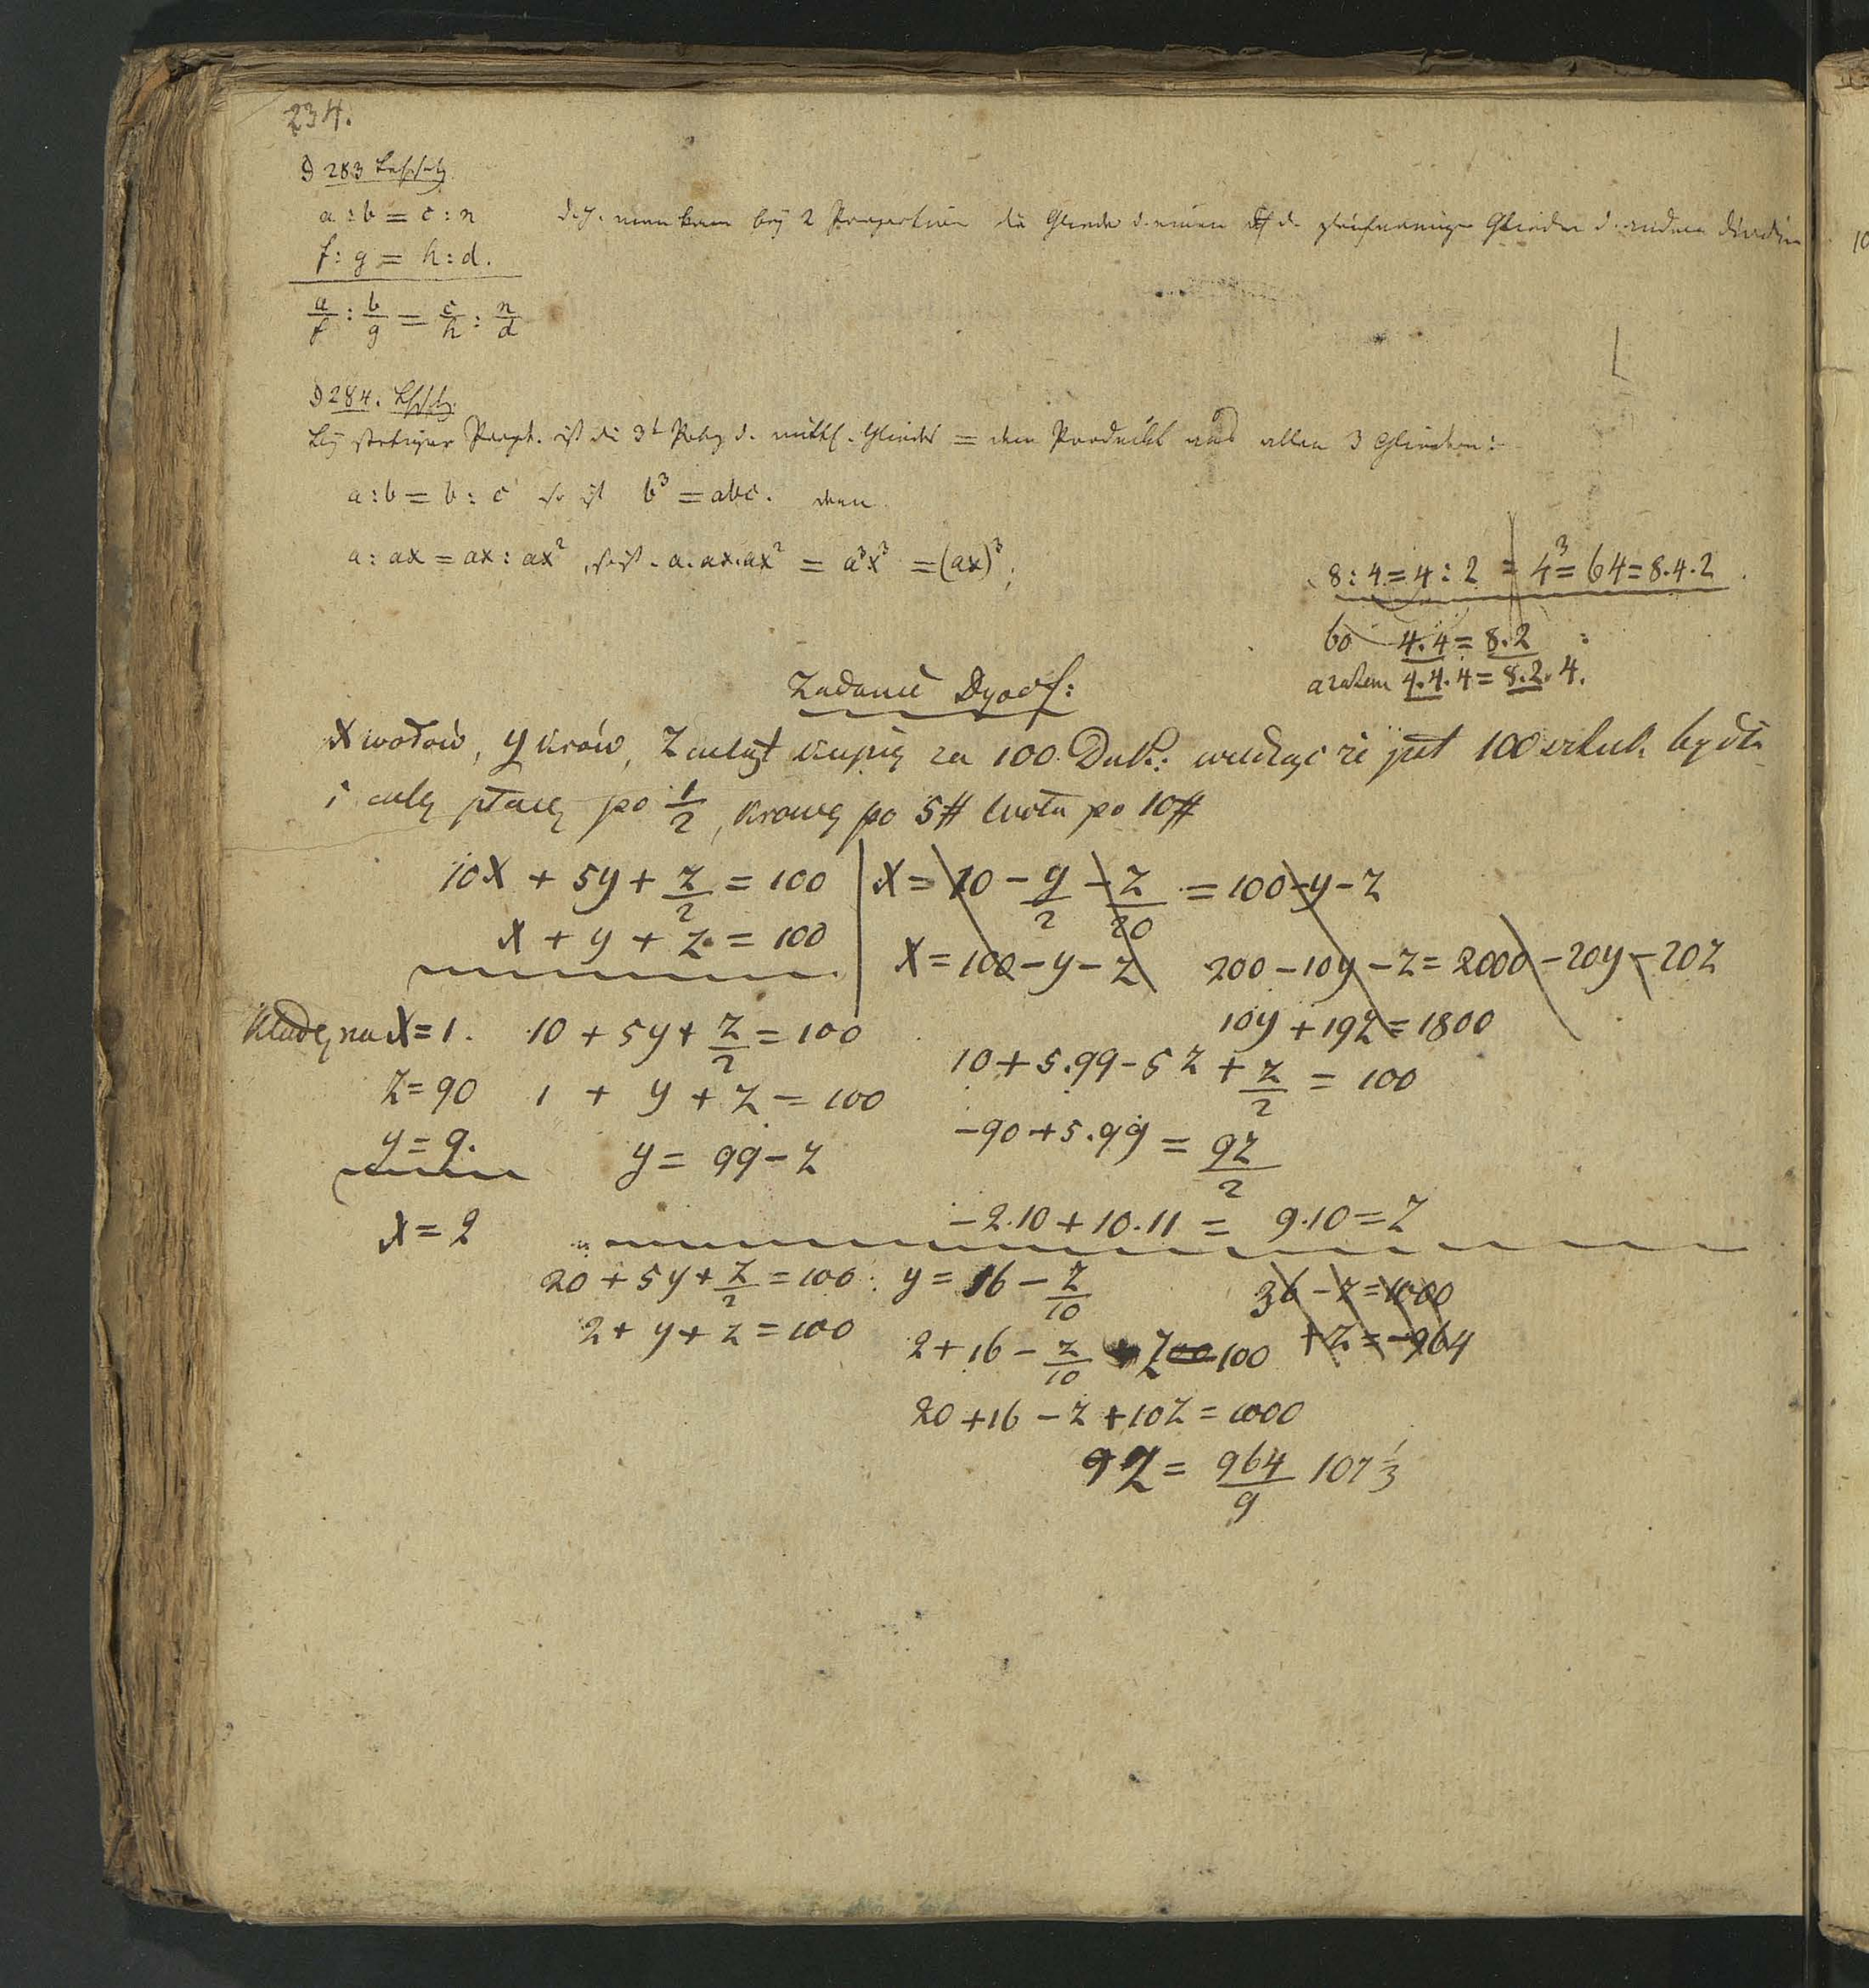 234.
§ 283 Lehrsatz.
a : b = c : n
d. h. man kann bey 2 Proportion die Glieder d. einen d. gleichnamige Glieder d. andern dividiren
f : g = h : d.
a/f : b/g = c/h : n/d
§ 284. Lehrsatz.
bey stetiger Propt. ist die 3t Potz d. mittl. Glieds = dem Produckt aus allen 3 Gliedern:
a : b = b : c so ist b³ = abc. denn
a : ax = ax : ax², so ist a.ax.ax² = a³x³ = (ax)³;
8 : 4 = 4 : 2 = 4³ = 64 = 8.4.2
bo 4.4 = 8.2 :
a zatem 4.4.4 = 8.2.4.
Zadanie Dyof:
X wołów, y krów, Z cieląt kupię za 100 Duk: wiedząc że jest 100 sztuk bydła
i cielę płacę po 1/2, krowę po 5# woła po 10#
10X + 5y + z/2 = 100
X = 10 - y/2 - z/20 = 100 - y - z
x + y + z = 100
X = 100 - y - z 200 - 10y - z = 2000 - 20y - 20z
10y + 19z = 1800
Kładę na X = 1. 10 + 5y + z/2 = 100
10 + 5.99 - 5z + z/2 = 100
z = 90 1 + y + z = 100
-90 + 5.99 = 9z/2
y = 9. y = 99 - z
-2.10 + 10.11 = 9.10 = z
x = 2
20 + 5y + z/2 = 100 : y = 16 - z/10
36 - z = 1000
2 + y + z = 100
2 + 16 - z/10 + z = 100
+z = -964
20 + 16 - z + 10z = 1000
9z = 964/9 107 1/3